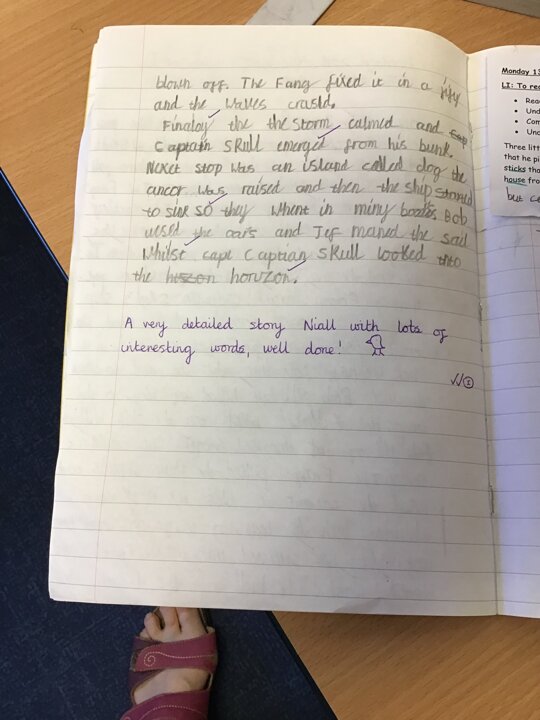 blown off. The Fang fixed it in a jify
and the waves crasld.
Finaloy the the storm calmed and cap
Captain SKull emerged from his bunk.
Nexet stop was an island called dog the
ancor was raised and then the ship storned
to sink so they whent in miny boates Bob
uesd the oars and Jef maned the sail
Whilst cape Captian SKull looked into
the horizon.
A very detailed story Niall with lots of
interesting words, well done!
Monday 13
LI: To rea
• Rea
• Und
• Com
• Und
Three litt
that he pi
sticks tha
house fro
but ce